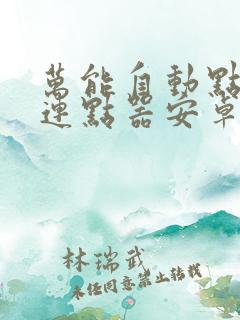 萬能自動點
連點器安卓
林瑞武
未經同意禁止轉載